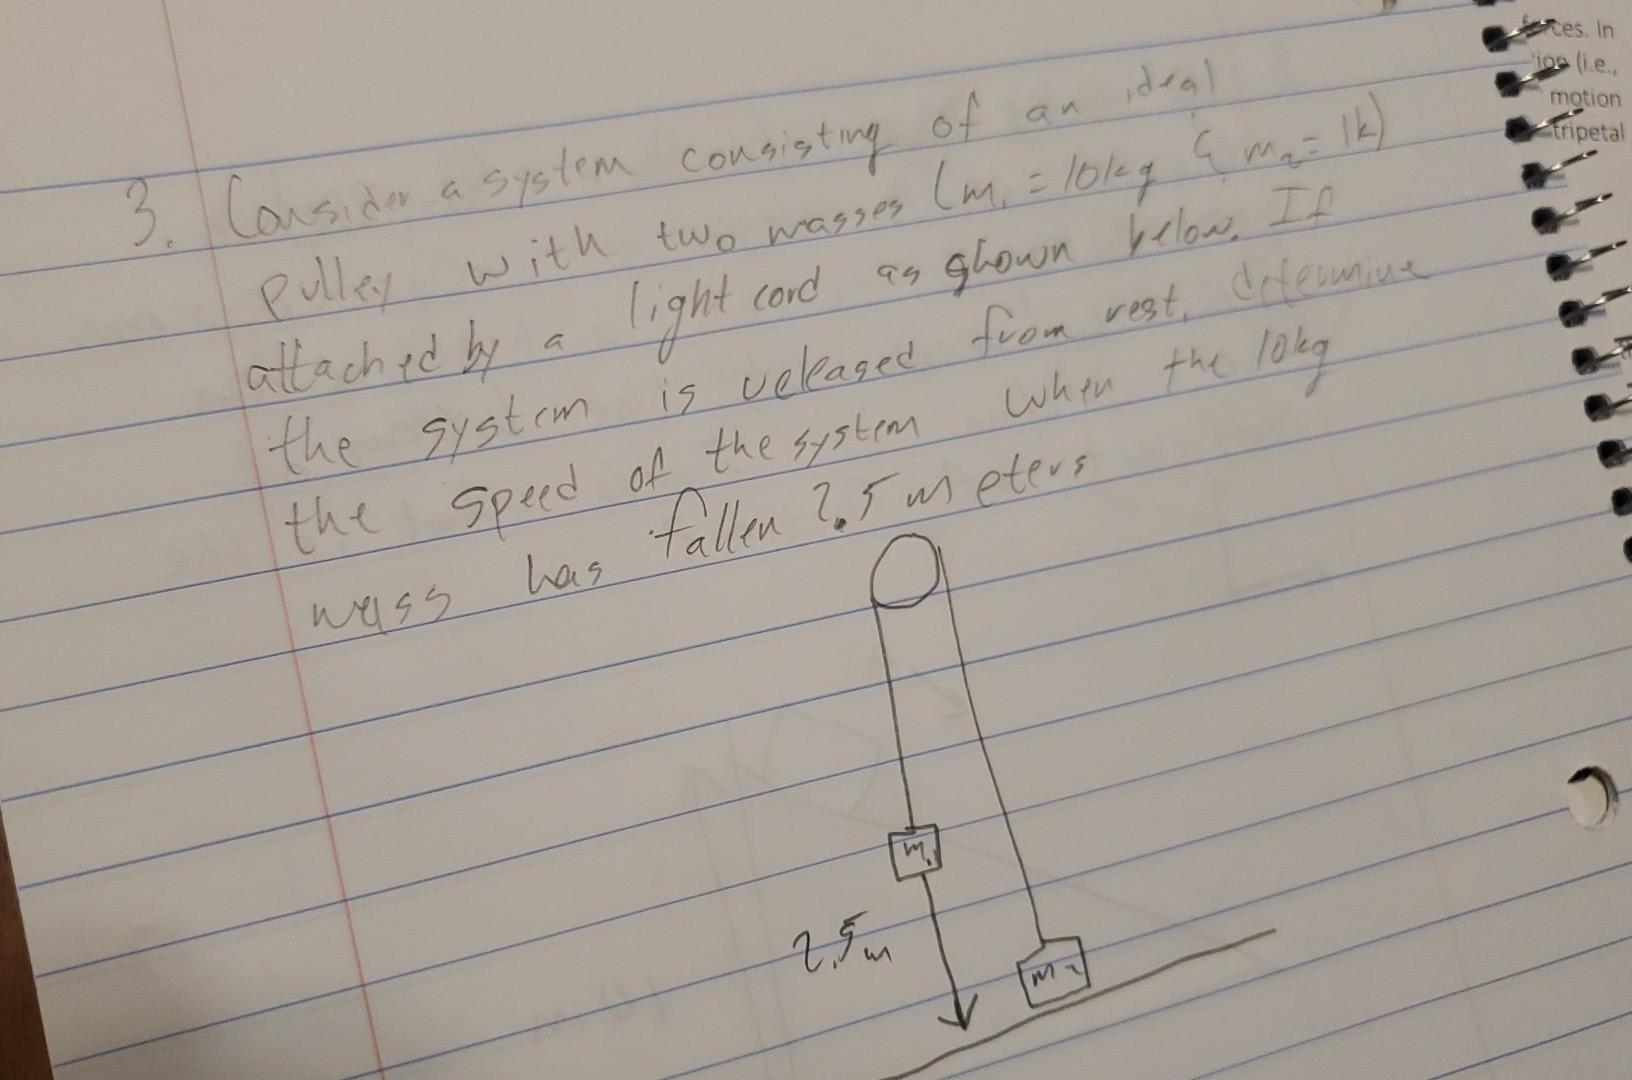 3. Consider a system consisting of an ideal
pulley with two masses (m₁ = 10kg & m₂ = 1k)
attached by a light cord as shown below. If
the system is released from rest, determine
the speed of the system when the 10kg
mass has fallen 2.5 meters
m₁
2.5m
m₂
ces. In
ion (i.e.,
motion
tripetal